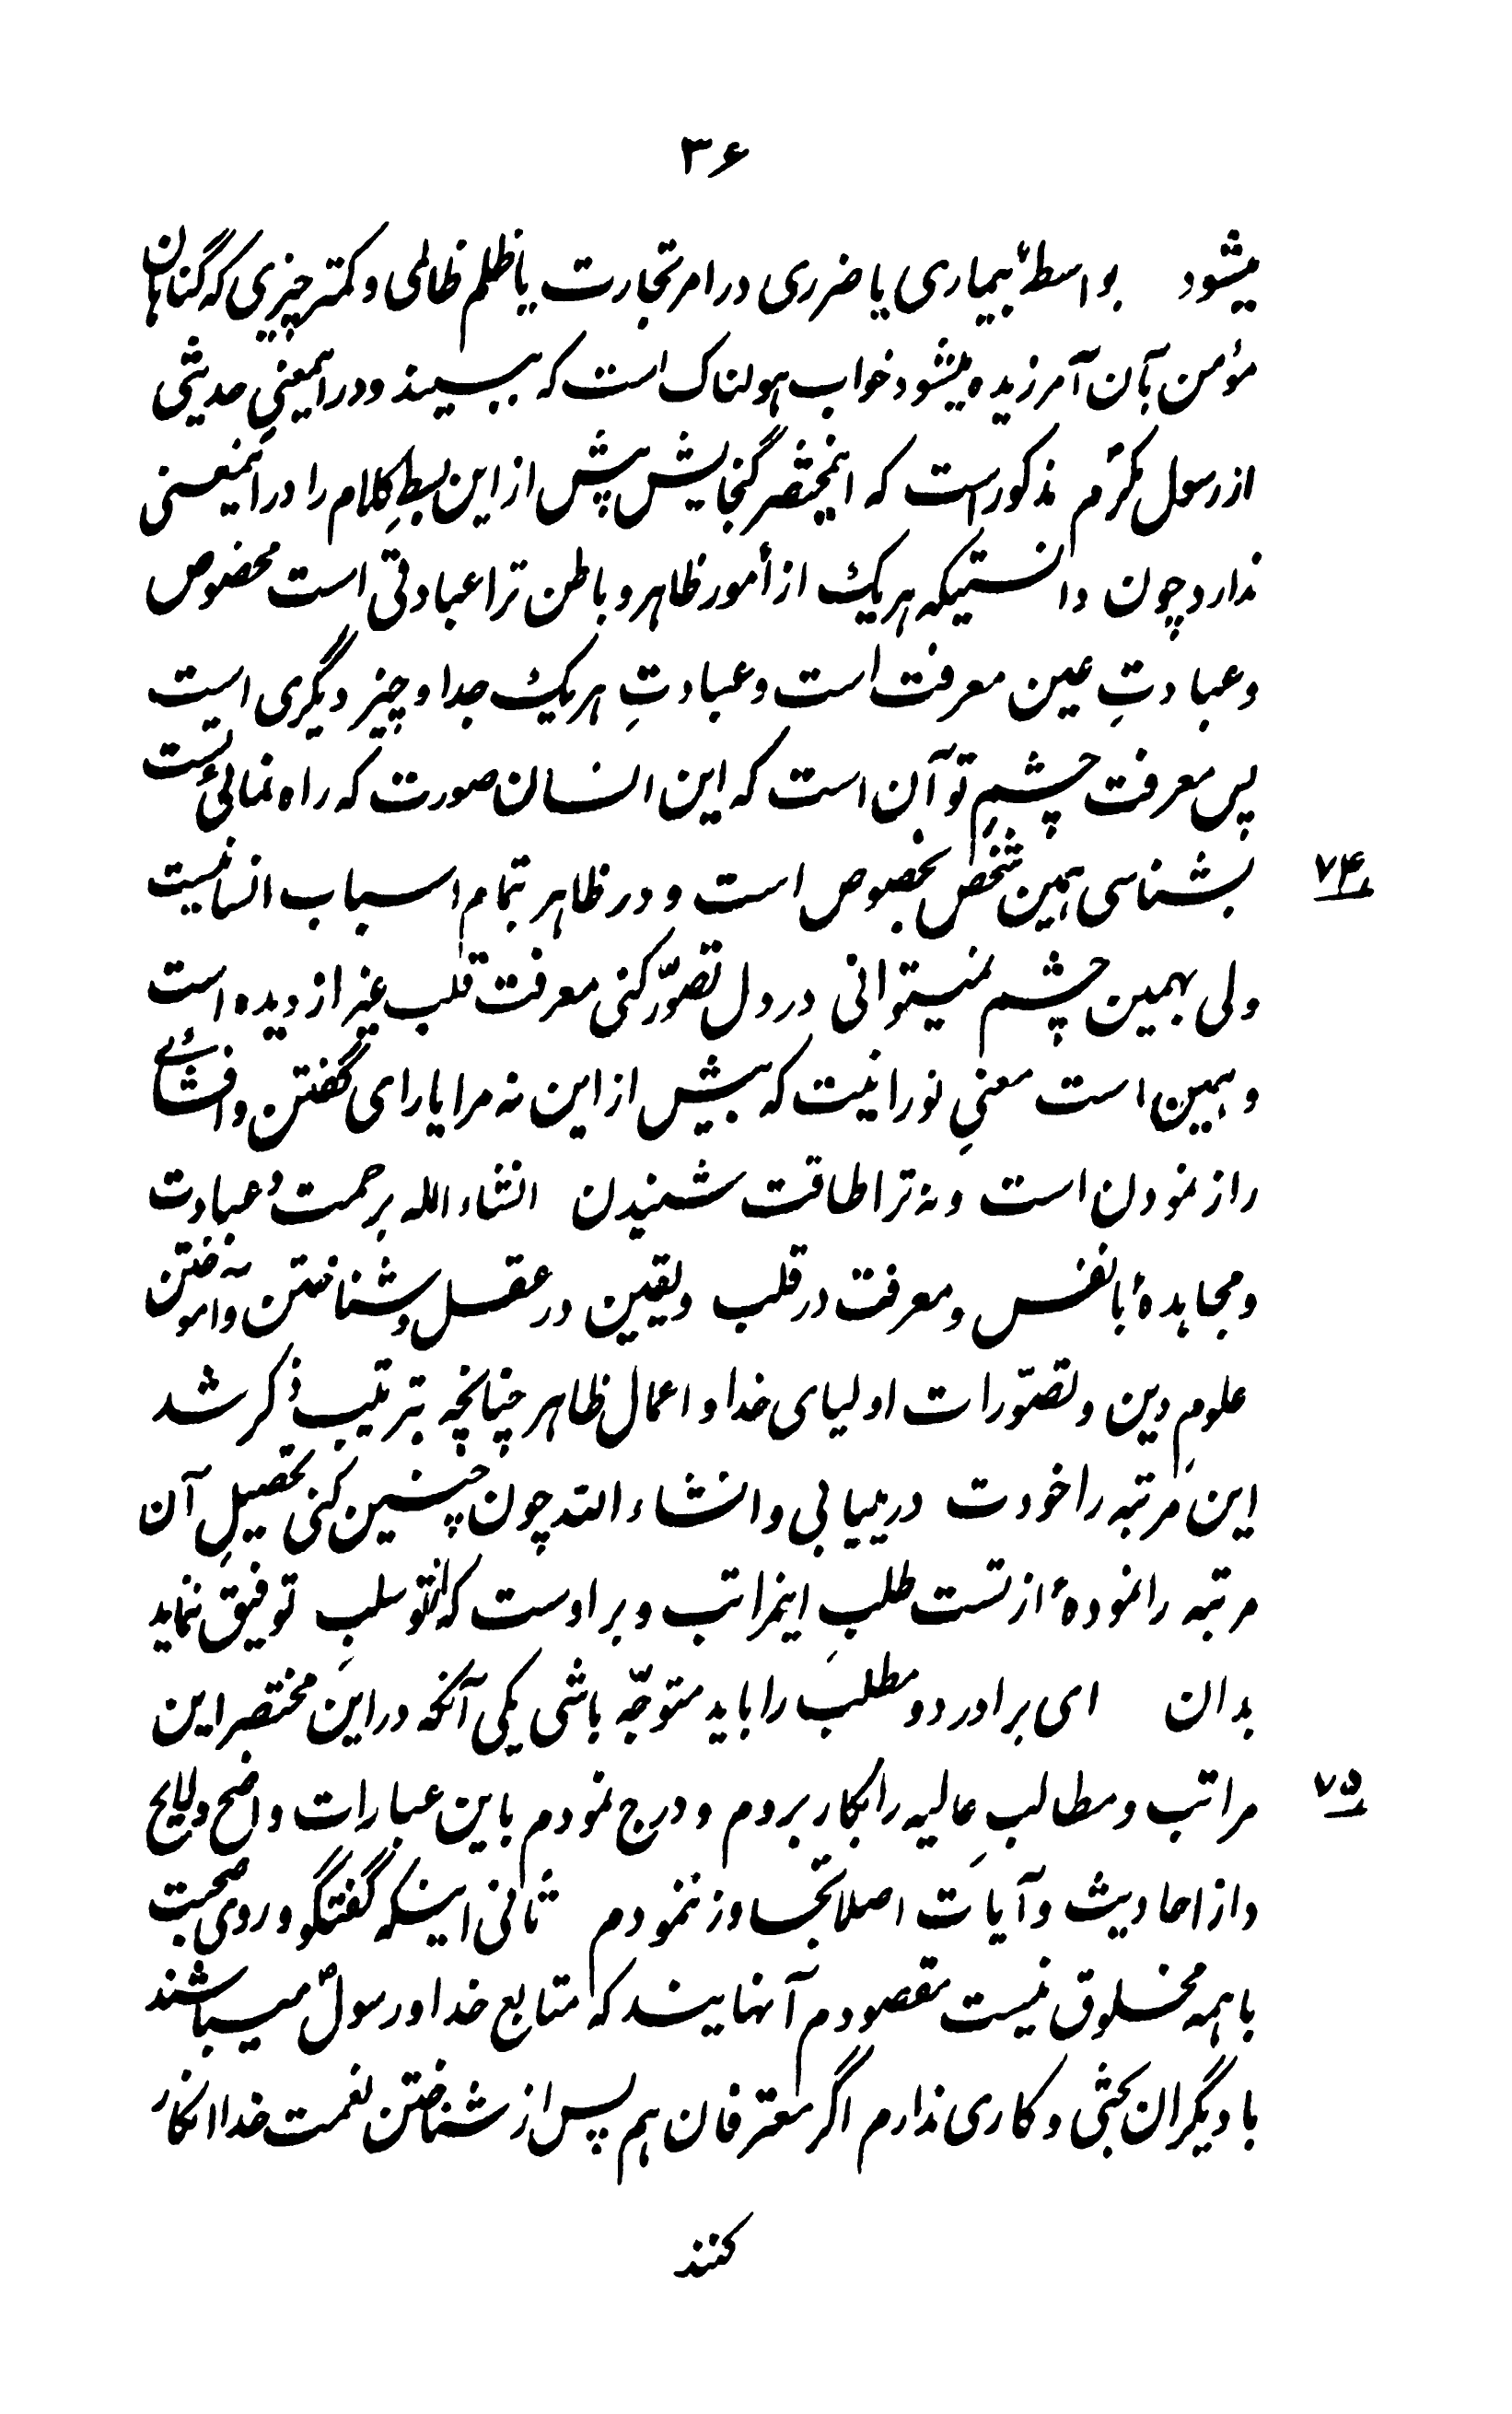 ۳۶
میشود بواسطهٔ بیماری یا ضرری در امر تجارت یا ظلم ظالمی و کمتر چیزی که گناهان
مؤمن بآن آمرزیده میشود خواب هولناک است که ببیند و در اینمعنی حدیثی
از رسول مکرّم مذکور است که اینمختصر گنجایش بیش از این بسطِ کلام را در اینمعنی
ندارد چون دانستیکه هریک از أمور ظاهر و باطن ترا عبادتی است مخصوص
و عبادتِ عین معرفت است و عبادتِ هریک جدا و چیز دیگری است
پس معرفت چشمِ تو آن است که این انسان صورت که راه نمائیِ تست
بشناسی همین شخص بخصوص است و در ظاهر بتمام اسباب انسانیست
۷۴
ولی بهمین چشم نمیتوانی در دل تصوّر کنی معرفت قلب غیر از دیده است
و همین است معنیِ نورانیت که بیش از این نه مرا یارای گفتن و افشاءِ
راز نمودن است و نه ترا طاقت شنیدن انشاء الله برحمت و عبادت
و مجاهدهٔ با نفس و معرفت در قلب و یقین در عقل و شناختن و آموختن
علومِ دین و تصوّرات اولیای خدا و اعمال ظاهر چنانچه بترتیب ذکر شد
این مرتبه را خودت درمییابی و انشاء الله چون چنین کنی تحصیلِ آن
مرتبه را نمودهٔ از تست طلبِ اینمراتب و بر اوست که از تو سلبِ توفیق ننماید
بدان ای برادر دو مطلب را باید متوجّه باشی یکی آنکه در این مختصر این
مراتب و مطالبِ عالیه را بکار بردم و درج نمودم باین عبارات واضح و لایح
۷۵
و از احادیث و آیات اصلا تجاوز ننمودم ثانی اینکه گفتگو و روی صحبت
با همه مخلوق نیست مقصودم آنهایند که متابع خدا و رسول میباشند
با دیگران بحثی و کاری ندارم اگر معترفان هم پس از شناختن نعمت خدا انکار
کنند